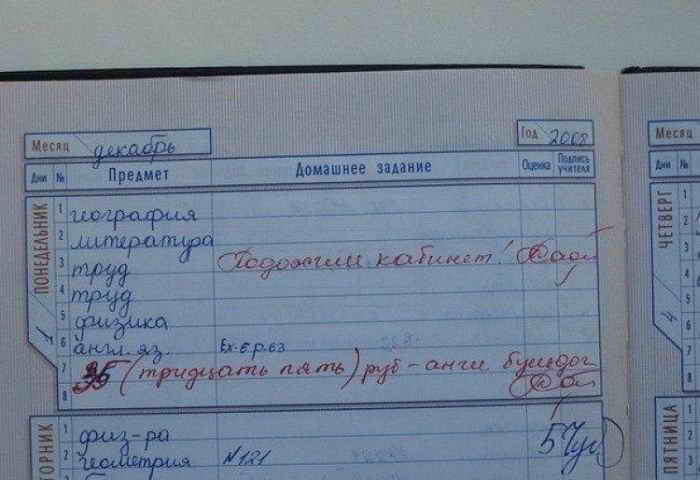 Месяц декабрь Год 2008 Месяц
Дни № Предмет Домашнее задание Оценка Подпись учителя Дни №
ПОНЕДЕЛЬНИК 1
1 география
2 литература
3 труд Подожгли кабинет!
4 труд
5 физика
6 англ. яз. Ex. 6. p. 63
7 35 (тридцать пять) руб - англ бульдог
8
ВТОРНИК
1 физ-ра
2 геометрия №121 5
ЧЕТВЕРГ 4
1
2
3
4
5
6
7
8
ПЯТНИЦА
1
2
3